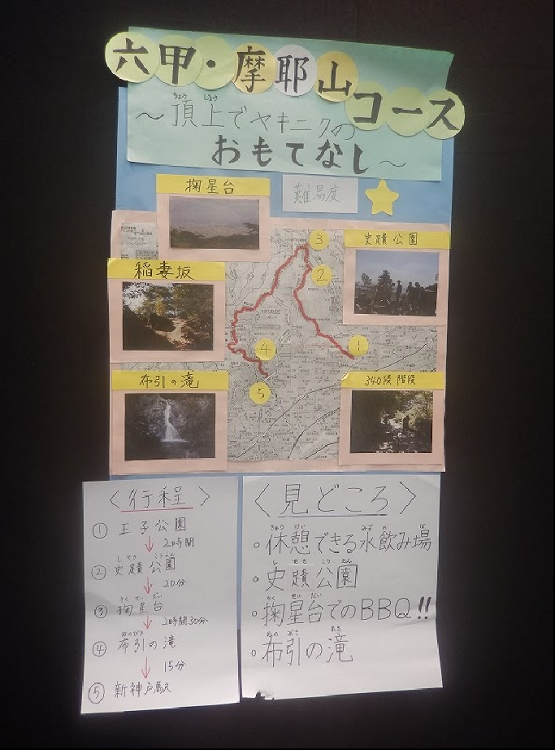 六甲・摩耶山コース
～頂上でヤキニクの
おもてなし～
難易度
掬星台
史蹟公園
稲妻坂
布引の滝
340段階段
3
2
1
4
5
〈行程〉
① 王子公園
2時間
② 史蹟公園
20分
③ 掬星台
2時間30分
④ 布引の滝
15分
⑤ 新神戸駅
〈見どころ〉
・休憩できる水飲み場
・史蹟公園
・掬星台でのBBQ!!
・布引の滝